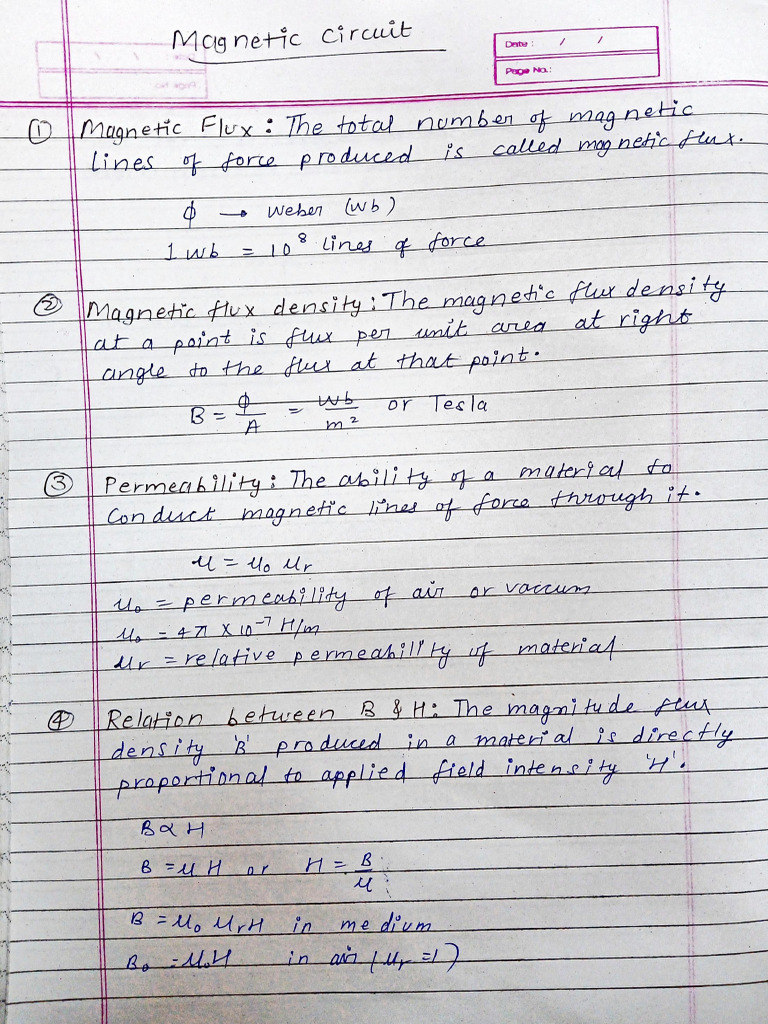 Magnetic Circuit
Date : / /
Page No.:
① Magnetic Flux : The total number of magnetic
lines of force produced is called magnetic flux.
ϕ → Weber (wb)
1 wb = 10⁸ lines of force
② Magnetic flux density : The magnetic flux density
at a point is flux per unit area at right
angle to the flux at that point.
B = ϕ/A = Wb/m² or Tesla
③ Permeability : The ability of a material to
Conduct magnetic lines of force through it.
μ = μ₀ μr
μ₀ = permeability of air or vaccum
μ₀ = 4π × 10⁻⁷ H/m
μr = relative permeability of material
④ Relation between B & H : The magnitude flux
density 'B' produced in a material is directly
proportional to applied field intensity 'H'.
B ∝ H
B = μ H or H = B/μ
B = μ₀ μr H in medium
B₀ = μ₀H in air (μr = 1)